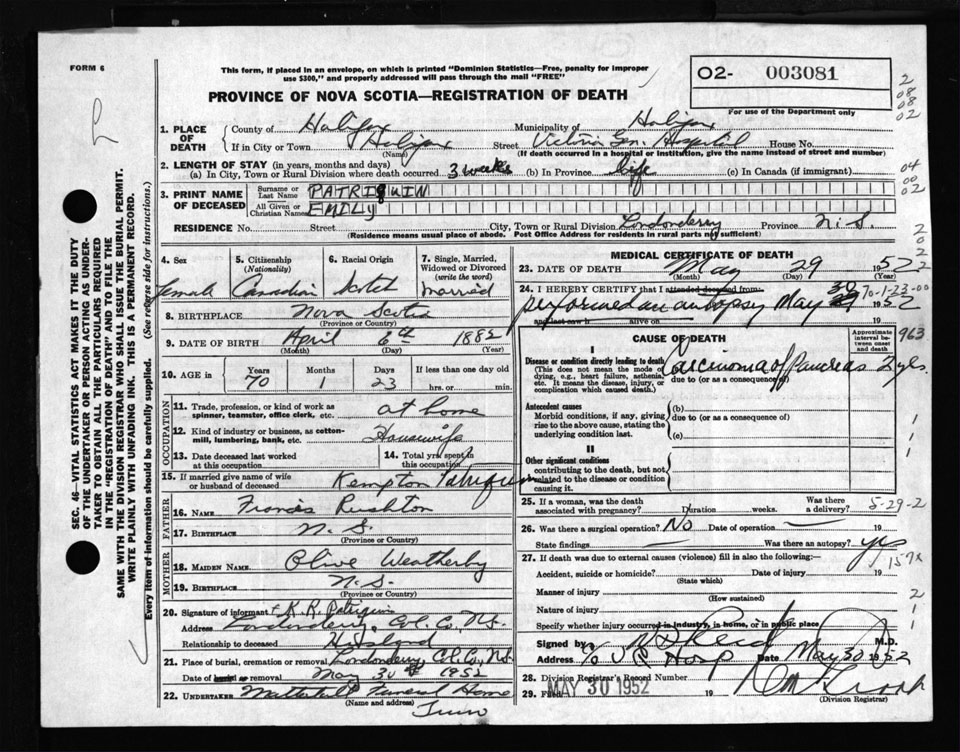 FORM 6
This form, if placed in an envelope, on which is printed "Dominion Statistics—Free, penalty for improper
use $300," and properly addressed will pass through the mail "FREE"
02- 003081
For use of the Department only
2
08
08
02
PROVINCE OF NOVA SCOTIA—REGISTRATION OF DEATH
1. PLACE OF DEATH County of Halifax Municipality of Halifax
If in City or Town Halifax Street Victoria Gen. Hospital House No.
(Name) (If death occurred in a hospital or institution, give the name instead of street and number)
2. LENGTH OF STAY (in years, months and days)
(a) In City, Town or Rural Division where death occurred 3 weeks (b) In Province life (c) In Canada (if immigrant)
04
00
02
3. PRINT NAME OF DECEASED Surname or Last Name PATRIQUIN
All Given or Christian Names EMILY
RESIDENCE No. Street City, Town or Rural Division Londonderry Province N.S.
(Residence means usual place of abode. Post Office Address for residents in rural parts is sufficient)
4. Sex 5. Citizenship (Nationality) 6. Racial Origin 7. Single, Married, Widowed or Divorced (write the word)
female Canadian Scotch Married
8. BIRTHPLACE Nova Scotia
(Province or Country)
9. DATE OF BIRTH April 6th 1882
(Month) (Day) (Year)
10. AGE in Years Months Days If less than one day old
70 1 23 hrs. or min.
OCCUPATION
11. Trade, profession, or kind of work as spinner, teamster, office clerk, etc. at home
12. Kind of industry or business, as cotton-mill, lumbering, bank, etc. Housewife
13. Date deceased last worked at this occupation 14. Total yrs. spent in this occupation
15. If married give name of wife or husband of deceased Kempton Patriquin
FATHER
16. NAME Francis Rushton
17. BIRTHPLACE N.S.
(Province or Country)
MOTHER
18. MAIDEN NAME Olive Weatherby
19. BIRTHPLACE N.S.
(Province or Country)
20. Signature of informant K.R. Patriquin
Address Londonderry, Col. Co., N.S.
Relationship to deceased Husband
21. Place of burial, cremation or removal Londonderry Col. Co., N.S.
Date of burial or removal May 30 1952
22. UNDERTAKER Funeral Home
(Name and address)
Truro
MEDICAL CERTIFICATE OF DEATH
23. DATE OF DEATH May 29 1952
(Month) (Day) (Year)
24. I HEREBY CERTIFY that I attended deceased from
performed an autopsy May 30 1952
and last saw h alive on
70-1-23-00
963
CAUSE OF DEATH
Approximate interval between onset and death
I
Disease or condition directly leading to death
(This does not mean the mode of dying, e.g., heart failure, asthenia, etc. It means the disease, injury, or complication which caused death.)
Carcinoma of Pancreas 2 yrs.
due to (or as a consequence of)
Antecedent causes
Morbid conditions, if any, giving rise to the above cause, stating the underlying condition last.
(b)
due to (or as a consequence of)
(c)
II
Other significant conditions
contributing to the death, but not related to the disease or condition causing it.
25. If a woman, was the death associated with pregnancy? Duration weeks. Was there a delivery?
5-29-2
26. Was there surgical operation? No Date of operation 19
State findings Was there an autopsy? yes
27. If death was due to external causes (violence) fill in also the following:—
157x
Accident, suicide or homicide? Date of injury 19
(State which)
Manner of injury
(How sustained)
Nature of injury
Specify whether injury occurred in industry, in home, or in public place
Signed by M.D.
Address Hosp Date May 30 1952
28. Division Registrar's Record Number
29. Filed MAY 30 1952 19
(Division Registrar)
SEC. 46—VITAL STATISTICS ACT MAKES IT THE DUTY
OF THE UNDERTAKER OR PERSON ACTING AS UNDER-
TAKER TO OBTAIN ALL THE PARTICULARS REQUIRED
IN THE "REGISTRATION OF DEATH" AND TO FILE THE
SAME WITH THE DIVISION REGISTRAR WHO SHALL ISSUE THE BURIAL PERMIT.
WRITE PLAINLY WITH UNFADING INK. THIS IS A PERMANENT RECORD.
Every item of information should be carefully supplied. (See reverse side for instructions.)